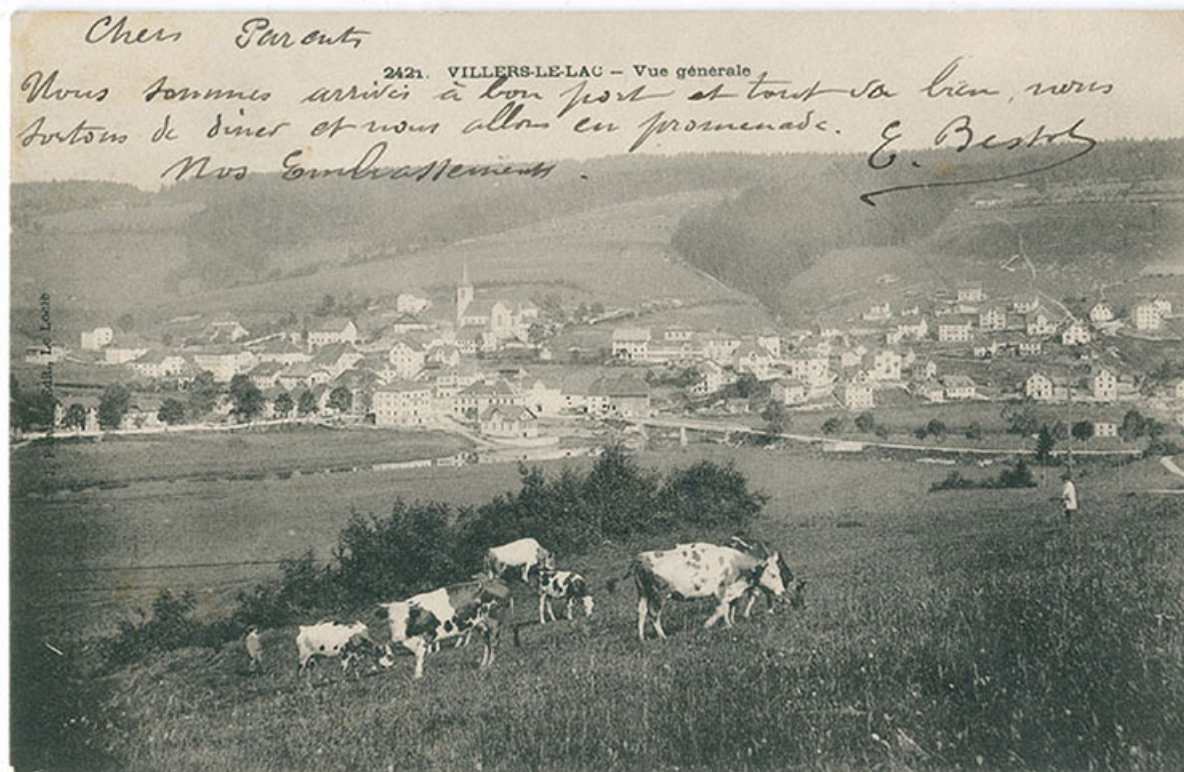 Chers Parents
2421. VILLERS-LE-LAC – Vue générale
Nous sommes arrivés à bon port et tout va bien, nous
sortons de diner et nous allons en promenade. E. Bestol
Nos Embrassements.
Le Locle